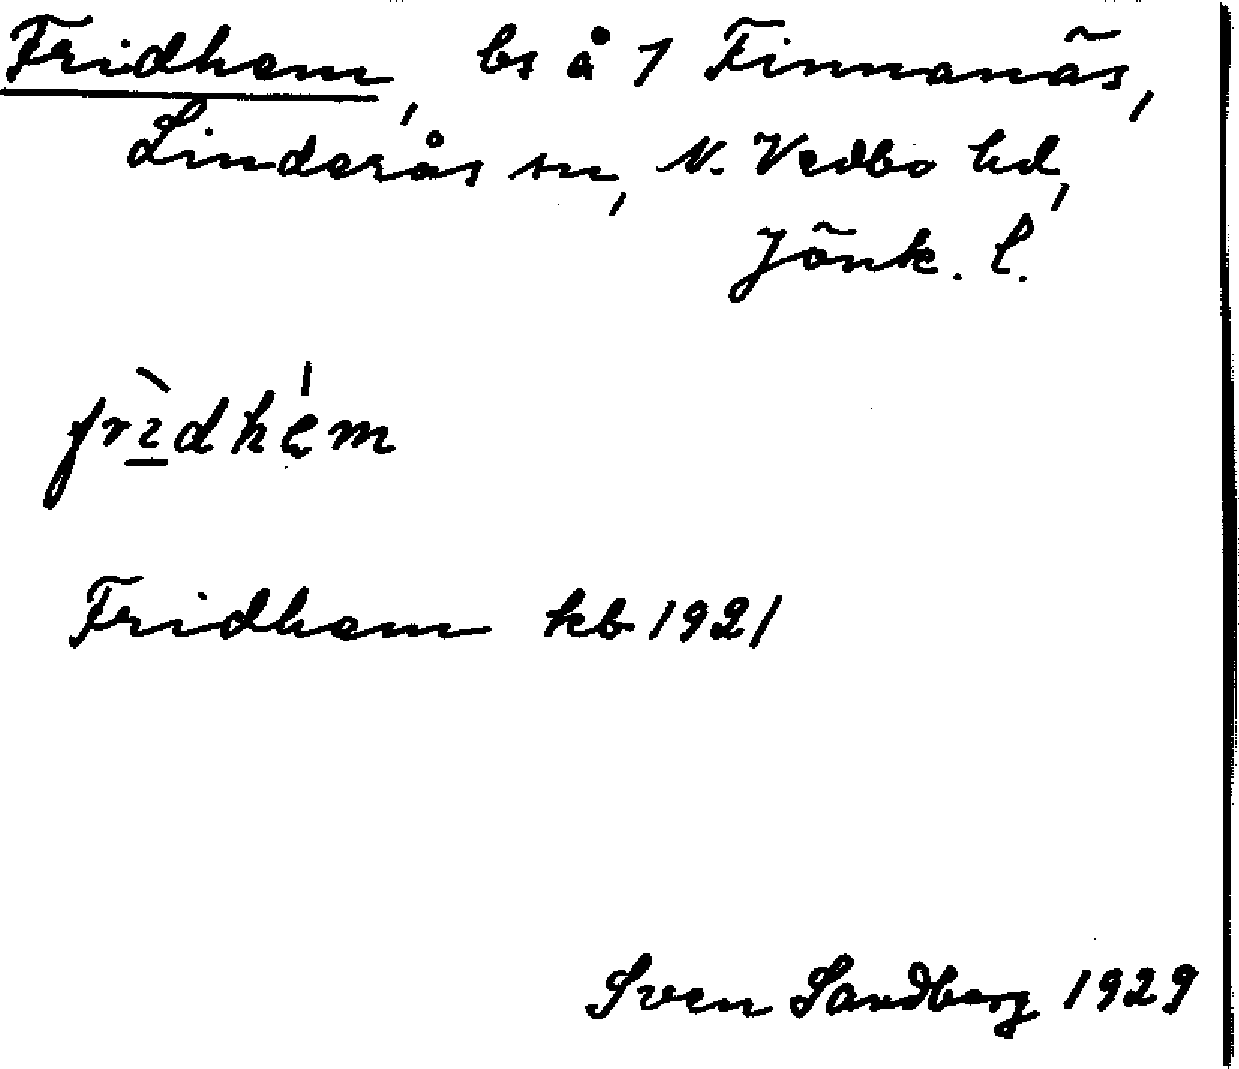 Fridhem, bs å 1 Finnanäs,
Linderås sn, N. Vedbo hd,
Jönk. l.
frìdhém
Fridhem kb 1921
Sven Sandberg 1929